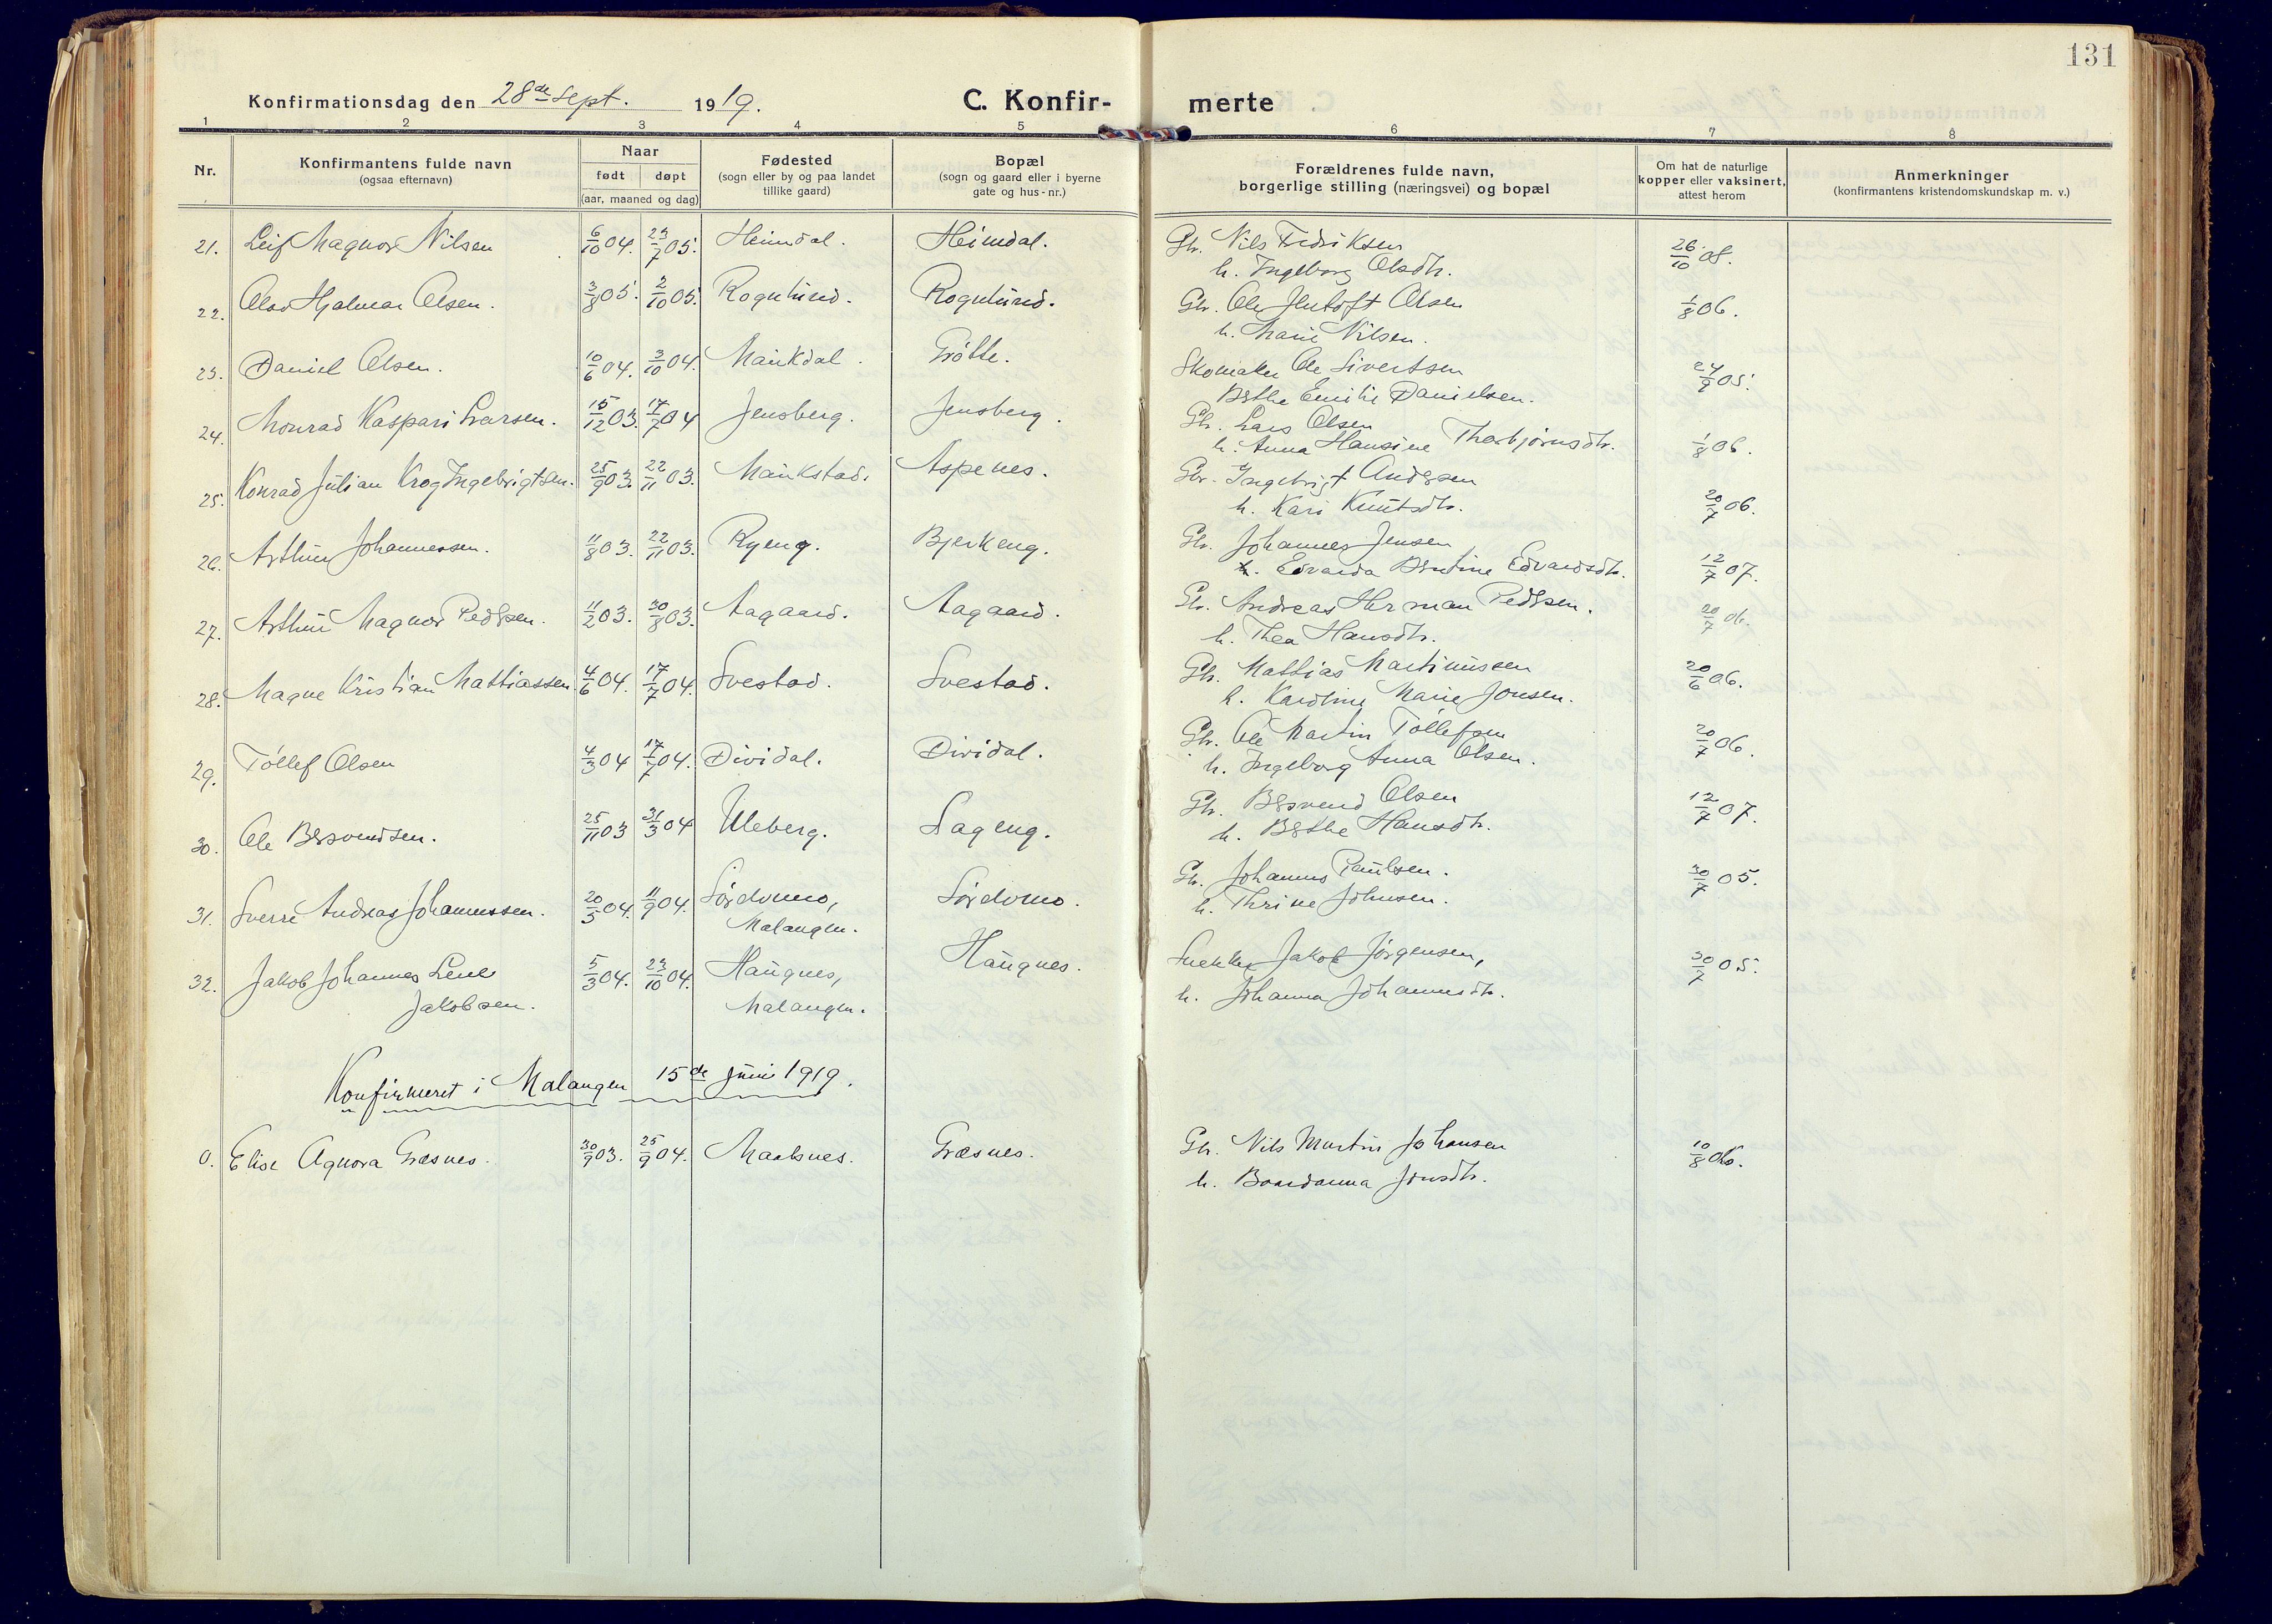 131
Konfirmationsdag den 28de Sept. 1919. C. Konfirmerte
1 2 3 4 5 6 7 8
Nr. Konfirmantens fulde navn (ogsaa efternavn) Naar født døpt (aar, maaned og dag) Fødested (sogn eller by og paa landet tillike gaard) Bopæl (sogn og gaard eller i byerne gate og hus-nr.) Forældrenes fulde navn, borgerlige stilling (næringsvei) og bopæl Om hat de naturlige kopper eller vaksinert, attest herom Anmerkninger (konfirmantens kristendomskundskap m. v.)
21. Leif Magnor Nilsen 6/10 04. 23/7 05. Heimdal. Heimdal. Gbr. Nils Fedriksen 26/10 08.
h. Ingeborg Olsdtr.
22. Olav Hjalmar Olsen. 3/8 05. 2/10 05. Rognlund. Rognlund. Gbr. Ole Jentoft Olsen 1/8 06.
h. Marie Nilsen.
23. Daniel Olsen. 10/6 04. 3/10 04. Maukdal. Grötte. Skomaker Ole Sivertsen 24/9 05.
Berthe Emilie Danielsen.
24. Monrad Kaspari Larsen. 15/12 03. 17/7 04 Jensberg. Jensberg. Gbr. Lars Olsen 1/8 06.
h. Anna Hansine Thorbjørnsdtr.
25. Konrad Julian Krog Ingebrigtsen. 25/9 03. 22/11 03. Maukstad. Aspenes. Gbr. Ingebrigt Andersen 20/7 06.
h. Kari Knutsdtr.
26. Arthur Johannessen. 11/8 03. 22/11 03. Ryeng. Bjerkeng. Gbr. Johannes Jensen 12/7 07.
h. Edvarda Berntine Edvardsdtr.
27. Arthur Magnor Pedersen. 11/2 03. 30/8 03. Aagaard. Aagaard. Gbr. Andreas Herman Pedersen. 20/7 06.
h. Thea Hansdtr.
28. Magne Kristian Mattiassen 4/6 04. 17/7 04. Svestad. Svestad. Gbr. Mattias Martinussen 20/6 06.
h. Karoline Marie Jonsen.
29. Tóllef Olsen 4/3 04 17/7 04. Dividal. Dividal. Gbr. Ole Martin Tóllefsen 20/7 06.
h. Ingeborg Anna Olsen.
30. Ole Bersvendsen. 25/11 03 31/3 04 Uleberg. Lageng. Gbr. Bersvend Olsen 12/7 07.
h. Berthe Hansdtr.
31. Sverre Andreas Johannessen. 20/5 04. 11/9 04. Sørdomo, Sørdomo. Gbr. Johannes Paulsen. 30/7 05.
Malangen. h. Thrine Johnsen.
32. Jakob Johannes Lene 5/3 04. 23/10 04. Haugnes, Haugnes. Snekker Jakob Jörgensen, 30/7 05.
Jakobsen. Malangen. h. Johanna Johannesdtr.
Konfirmeret i Malangen 15de juni 1919.
0. Elise Agnora Græsnes. 30/9 03. 25/9 04. Maalsnes. Græsnes. Gbr. Nils Martin Johansen 10/8 06.
h. Baardanna Jonsdtr.